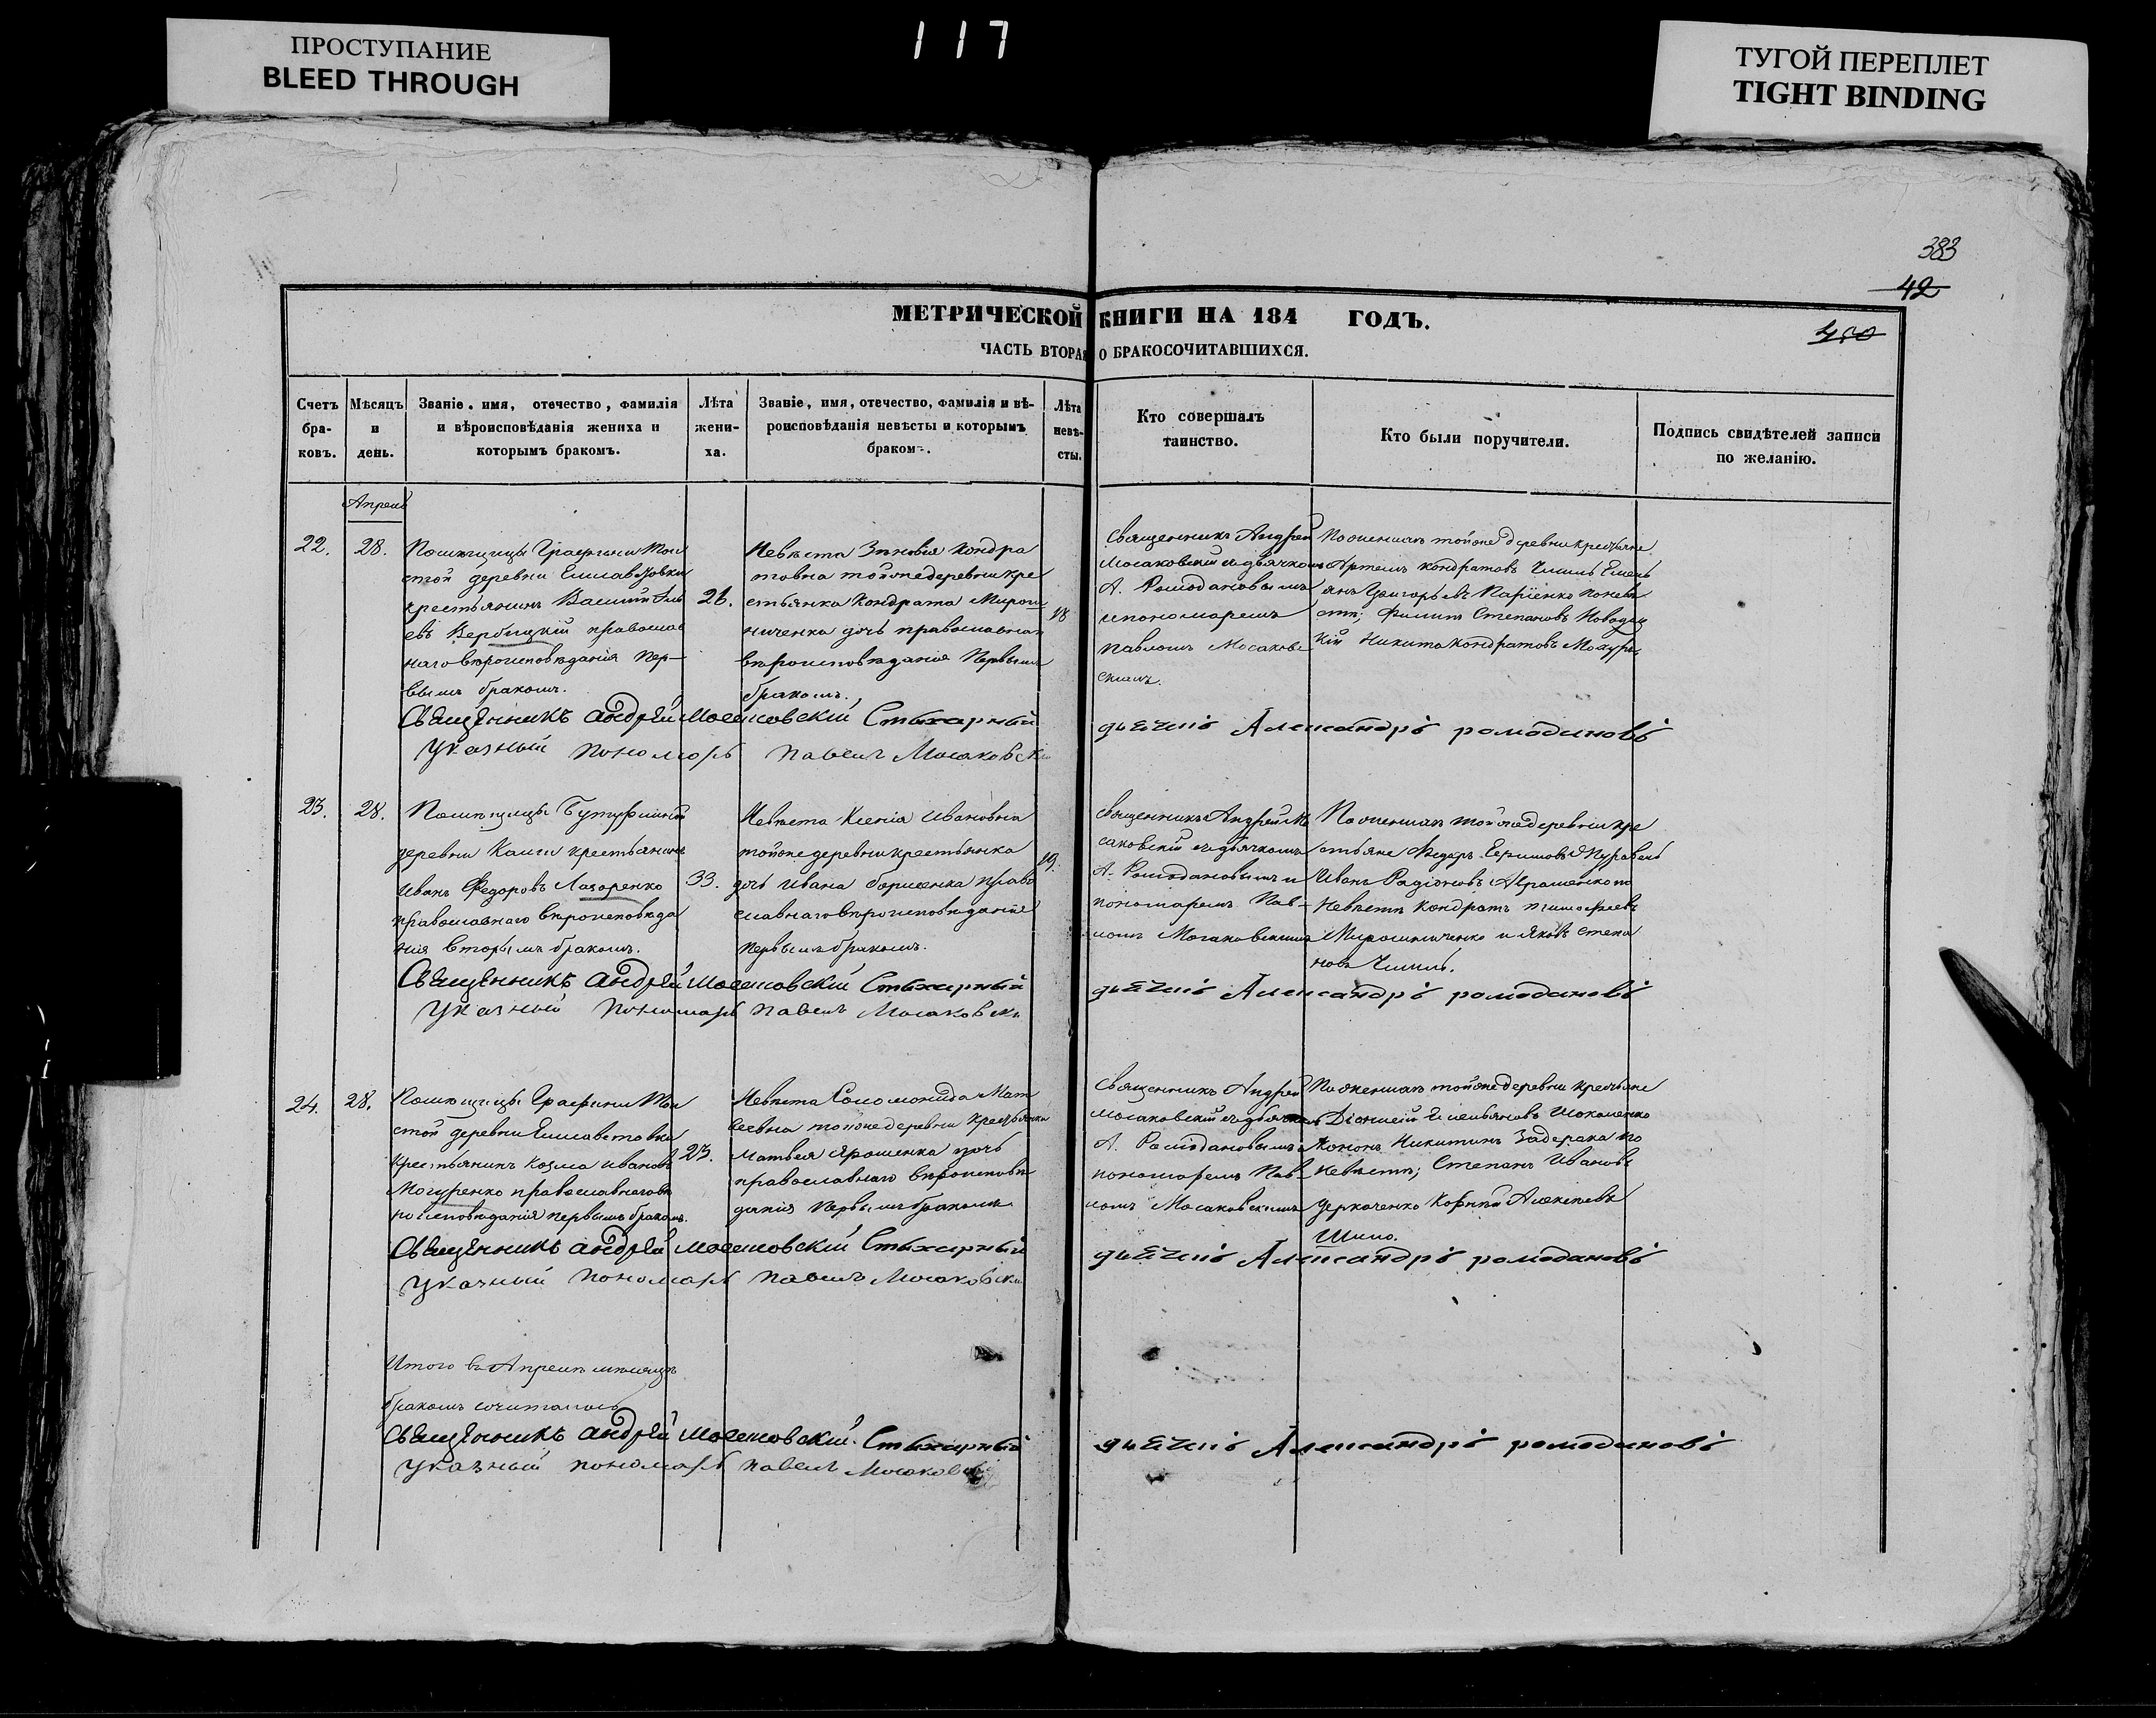 ПРОСТУПАНИЕ
BLEED THROUGH
117
ТУГОЙ ПЕРЕПЛЕТ
TIGHT BINDING
383
42
МЕТРИЧЕСКОЙ КНИГИ НА 184 ГОДЪ.
ЧАСТЬ ВТОРАЯ О БРАКОСОЧИТАВШИХСЯ.
Счетъ бра-ковъ.
Мѣсяцъ и день.
Званіе, имя, отечество, фамилія
и вѣроисповѣданія жениха и
которымъ бракомъ.
Лѣта жени-ха.
Званіе, имя, отечество, фамилія и вѣ-
роисповѣданія невѣсты и которымъ
бракомъ.
Лѣта невѣ-сты.
Кто совершалъ
таинство.
Кто были поручители.
Подпись свидѣтелей записи
по желанію.
Апрель
22.
28.
Помѣщицы Графини Тол
стой деревни
крестьянинъ Василій
евъ Вербицкій православ
наго вѣроисповѣданія пер-
вымъ бракомъ.
26.
Невѣста Зиновія Кондра
товна тойже деревни кре
стьянка Кондрата Мирош
ниченка дочь православнаго
вѣроисповѣданія первымъ
бракомъ.
18
Священникъ Андрей
Мосаковскій съ дьячкомъ
А. Ромодановымъ
и пономаремъ
Павломъ Мосаков
скимъ.
По женихѣ тойже деревни крестьяне
Артемъ Кондратовъ Емель
янъ Григорьевъ по невѣ
стѣ; Филипъ Степановъ
кій Никита Кондратовъ
Священникъ Андрей Мосаковскій Стихарный дьячекъ Александръ Ромодановъ
Указный пономарь Павелъ Мосаковскій
23.
28.
Помѣщицы
деревни крестьянинъ
Иванъ Федоровъ Лазоренко
православнаго вѣроисповѣда
нія вторымъ бракомъ.
33.
Невѣста Ксенія Ивановна
тойже деревни крестьянка
дочь Ивана право
славнаго вѣроисповѣданія
первымъ бракомъ.
19.
Священникъ Андрей Мо
саковскій съ дьячкомъ
А. Ромодановымъ и
пономаремъ Пав-
ломъ Мосаковскимъ
По женихѣ тойже деревни кре
стьяне Федоръ
Иванъ Радіоновъ по
невѣстѣ Кондратъ Тимофеевъ
Мирошниченко и Яковъ Степа
новъ
Священникъ Андрей Мосаковскій Стихарный дьячекъ Александръ Ромодановъ
Указный пономарь Павелъ Мосаковскій
24.
28.
Помѣщицы Графини Тол
стой деревни Елисаветовки
крестьянинъ Козма Ивановъ
православнаго вѣ
роисповѣданія первымъ бракомъ.
23.
Невѣста Соломонида Мат
веевна тойже деревни крестьянка
Матвея Ярошенка дочь
православнаго вѣроисповѣ
данія первымъ бракомъ
Священникъ Андрей
Мосаковскій съ дьячкомъ
А. Ромодановымъ и
пономаремъ Пав-
ломъ Мосаковскимъ
По женихѣ тойже деревни крестьяне
Емельяновъ
Кононъ Никитинъ Задерака по
невѣстѣ; Степанъ Ивановъ
Деркаченко Корній Алексѣевъ
Шило.
Священникъ Андрей Мосаковскій Стихарный дьячекъ Александръ Ромодановъ
Указный пономарь Павелъ Мосаковскій
Итого въ Апрелѣ мѣсяцѣ
бракомъ сочиталось
Священникъ Андрей Мосаковскій Стихарный дьячекъ Александръ Ромодановъ
Указный пономарь Павелъ Мосаковскій